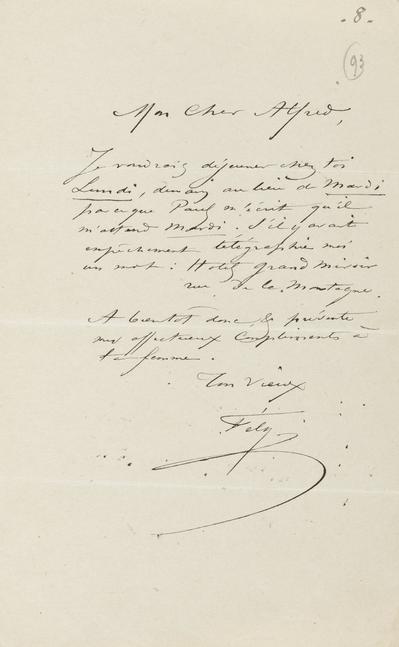 8
93
Mon Cher Alfred,
Je voudrais déjeuner chez toi
Lundi, demain au lieu de Mardi
parceque Paul m'écrit qu'il
m'attend Mardi. S'il y avait
empêchement télégraphie moi
un mot: Hotel grand Miroir
rue de la Montagne.
A bientôt donc, & présente
mes affectueux Compliments à
ta femme.
Ton Vieux
Fély